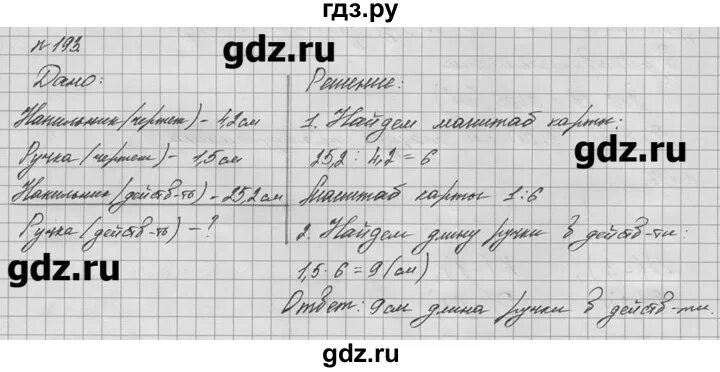 гдз.ру
n 193.
gdz.ru
Дано:
Решение:
Напильник (чертеж) - 4,2 см
1. Найдем масштаб карты:
Ручка (чертеж) - 1,5 см
25,2 : 4,2 = 6
gdz.ru
Напильник (действ-ть) - 25,2 см
Масштаб карты 1:6
Ручка (действ-ть) - ?
2. Найдем длину ручки в действ-ти:
gdz.ru
1,5 · 6 = 9 (см)
Ответ: 9 см длина ручки в действ-ти.
gdz.ru
gdz.ru